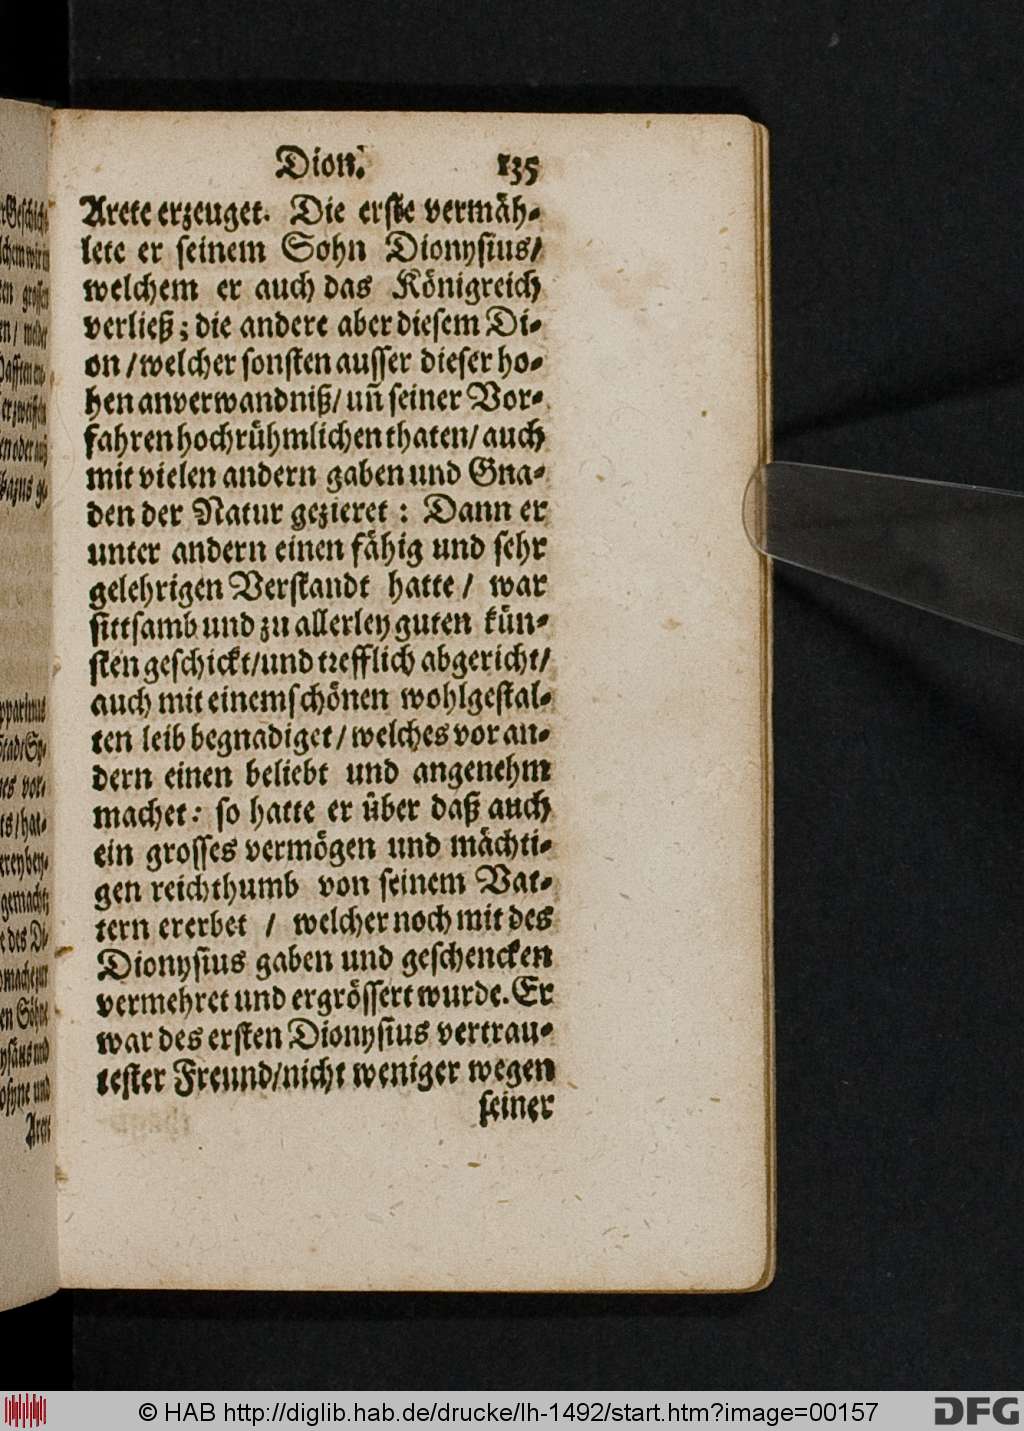 Dion. 135
Arete erzeuget. Die erste vermäh-
lete er seinem Sohn Dionysius/
welchem er auch das Königreich
verließ; die andere aber diesem Di-
on/welcher sonsten ausser dieser ho-
hen anverwandniß/ un̄ seiner Vor-
fahren hochrühmlichen thaten/ auch
mit vielen andern gaben und Gna-
den der Natur gezieret: Dann er
unter andern einen fähig und sehr
gelehrigen Verstandt hatte/ war
sittsamb und zu allerley guten kün-
sten geschickt/und trefflich abgericht/
auch mit einem schönen wohlgestal-
ten leib begnadiget/welches vor an-
dern einen beliebt und angenehm
machet: so hatte er über daß auch
ein grosses vermögen und mächti-
gen reichthumb von seinem Vat-
tern ererbet / welcher noch mit des
Dionysius gaben und geschencken
vermehret und ergrössert wurde. Er
war des ersten Dionysius vertrau-
tester Freund/nicht weniger wegen
seiner
© HAB http://diglib.hab.de/drucke/lh-1492/start.htm?image=00157
DFG